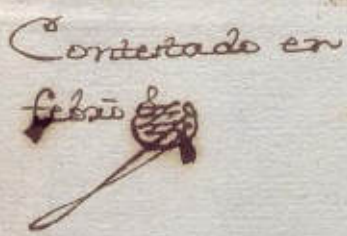 Contestado en
febro